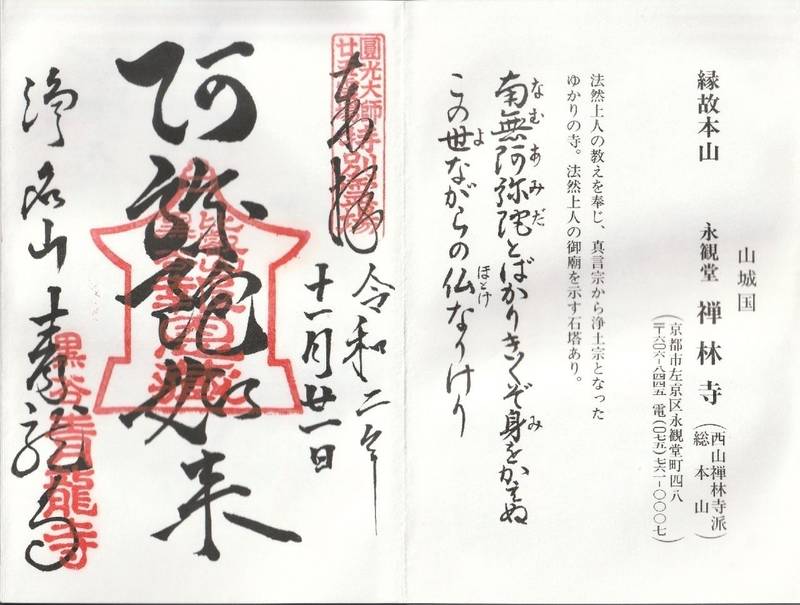 山城国
縁故本山 永観堂 禅林寺(西山禅林寺派 総本山)
(京都市左京区永観堂町四八
〒六〇六-八四四五 電(〇七五)七六一-〇〇〇七)
法然上人の教えを奉じ、真言宗から浄土宗となった
ゆかりの寺。法然上人の御廟を示す石塔あり。
南無阿弥陀とばかりきくぞ身をかさぬ
なむあみだ み
この世ながらの仏なりけり
よ ほとけ
圓光大師
特別霊場
奉拝
令和二年
十一月廿一日
阿弥陀如来
浄名山 青龍寺
黒谷青龍寺